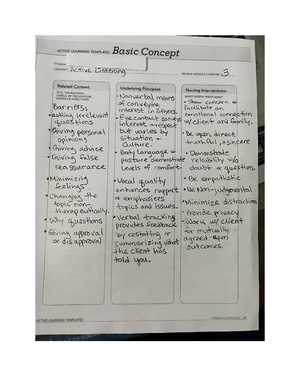 ACTIVE LEARNING TEMPLATE: Basic Concept
CONCEPT Active Listening
REVIEW MODULE CHAPTER 3
Related Content
Barriers:
asking irrelevant
questions
Giving personal
opinions
Giving advice
Giving false
reassurance
Minimizing
feelings
Changing the
topic non-
therapeutically.
Why questions
Giving approval
or disapproval
Underlying Principles
Nonverbal means
of conveying
interest in others.
Eye contact conveys
interest & respect
but varies by
situation &
culture.
Body language &
posture demonstrate
levels of comfort.
Vocal quality
enhances rapport
& emphasizes
topics and issues.
Verbal tracking
provides feedback
by restating or
summarizing what
the client has
told you.
Nursing Interventions
Show concern &
facilitate an
emotional connection
w/ client and family.
Be open, direct,
truthful, & sincere
Demonstrate
reliability w/o
doubt or question.
Be empathetic
Be Non-judgmental
Minimize distractions
Provide privacy
Work w/ client
for mutually
agreed upon
outcomes.
ACTIVE LEARNING TEMPLATES